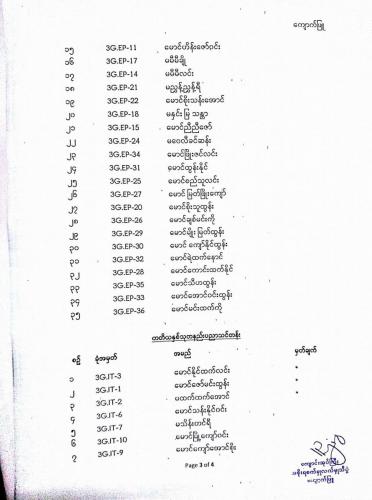 ကျောက်ဖြူ
၁၅ 3G.EP-11 မောင်ဟိန်းဇော်ဝင်း
၁၆ 3G.EP-17 မမိမိချို
၁၇ 3G.EP-14 မမိမိလင်း
၁၈ 3G.EP-21 မညွန့်ညွန့်ရီ
၁၉ 3G.EP-22 မောင်စိုးသန်းအောင်
၂၀ 3G.EP-18 မနှင်း မြ သန္တာ
၂၁ 3G.EP-15 မောင်ညီညီဇော်
၂၂ 3G.EP-24 မဝေလီခင်ဆန်း
၂၃ 3G.EP-34 မောင်ဖြိုးဇင်လင်း
၂၄ 3G.EP-31 မောင်ထွန်းနိုင်
၂၅ 3G.EP-25 မောင်စည်သူလင်း
၂၆ 3G.EP-27 မောင် မြတ်ဖြိုးကျော်
၂၇ 3G.EP-20 မောင်စိုးသူထွန်း
၂၈ 3G.EP-26 မောင်ချစ်မင်းကို
၂၉ 3G.EP-29 မောင်မျိုး မြတ်ထွန်း
၃၀ 3G.EP-30 မောင် ကျော်နိုင်ထွန်း
၃၁ 3G.EP-32 မောင်ရဲထက်နောင်
၃၂ 3G.EP-28 မောင်ကောင်းထက်နိုင်
၃၃ 3G.EP-35 မောင်သီဟထွန်း
၃၄ 3G.EP-33 မောင်အောင်ဝင်းထွန်း
၃၅ 3G.EP-36 မောင်မင်းထက်ကို
တတိယနှစ်သုတနည်းပညာသင်တန်း
စဉ် ခုံအမှတ် အမည် မှတ်ချက်
၁ 3G.IT-3 မောင်နိုင်ထက်လင်း *
၂ 3G.IT-1 မောင်ဇော်မင်းထွန်း *
၃ 3G.IT-2 မထက်ထက်အောင် *
၄ 3G.IT-6 မောင်သန်းနိုင်ဝင်း
၅ 3G.IT-7 မသိန်းတင်ရီ
၆ 3G.IT-10 မောင်ဖြို့ကျော်ဝင်း
၇ 3G.IT-9 မောင်ကျော်အောင်စိုး
Page 3 of 4
ကျောင်းအုပ်ကြီး
အစိုးရစက်မှုလက်မှုသိပ္ပံ
ကျောက်ဖြူ